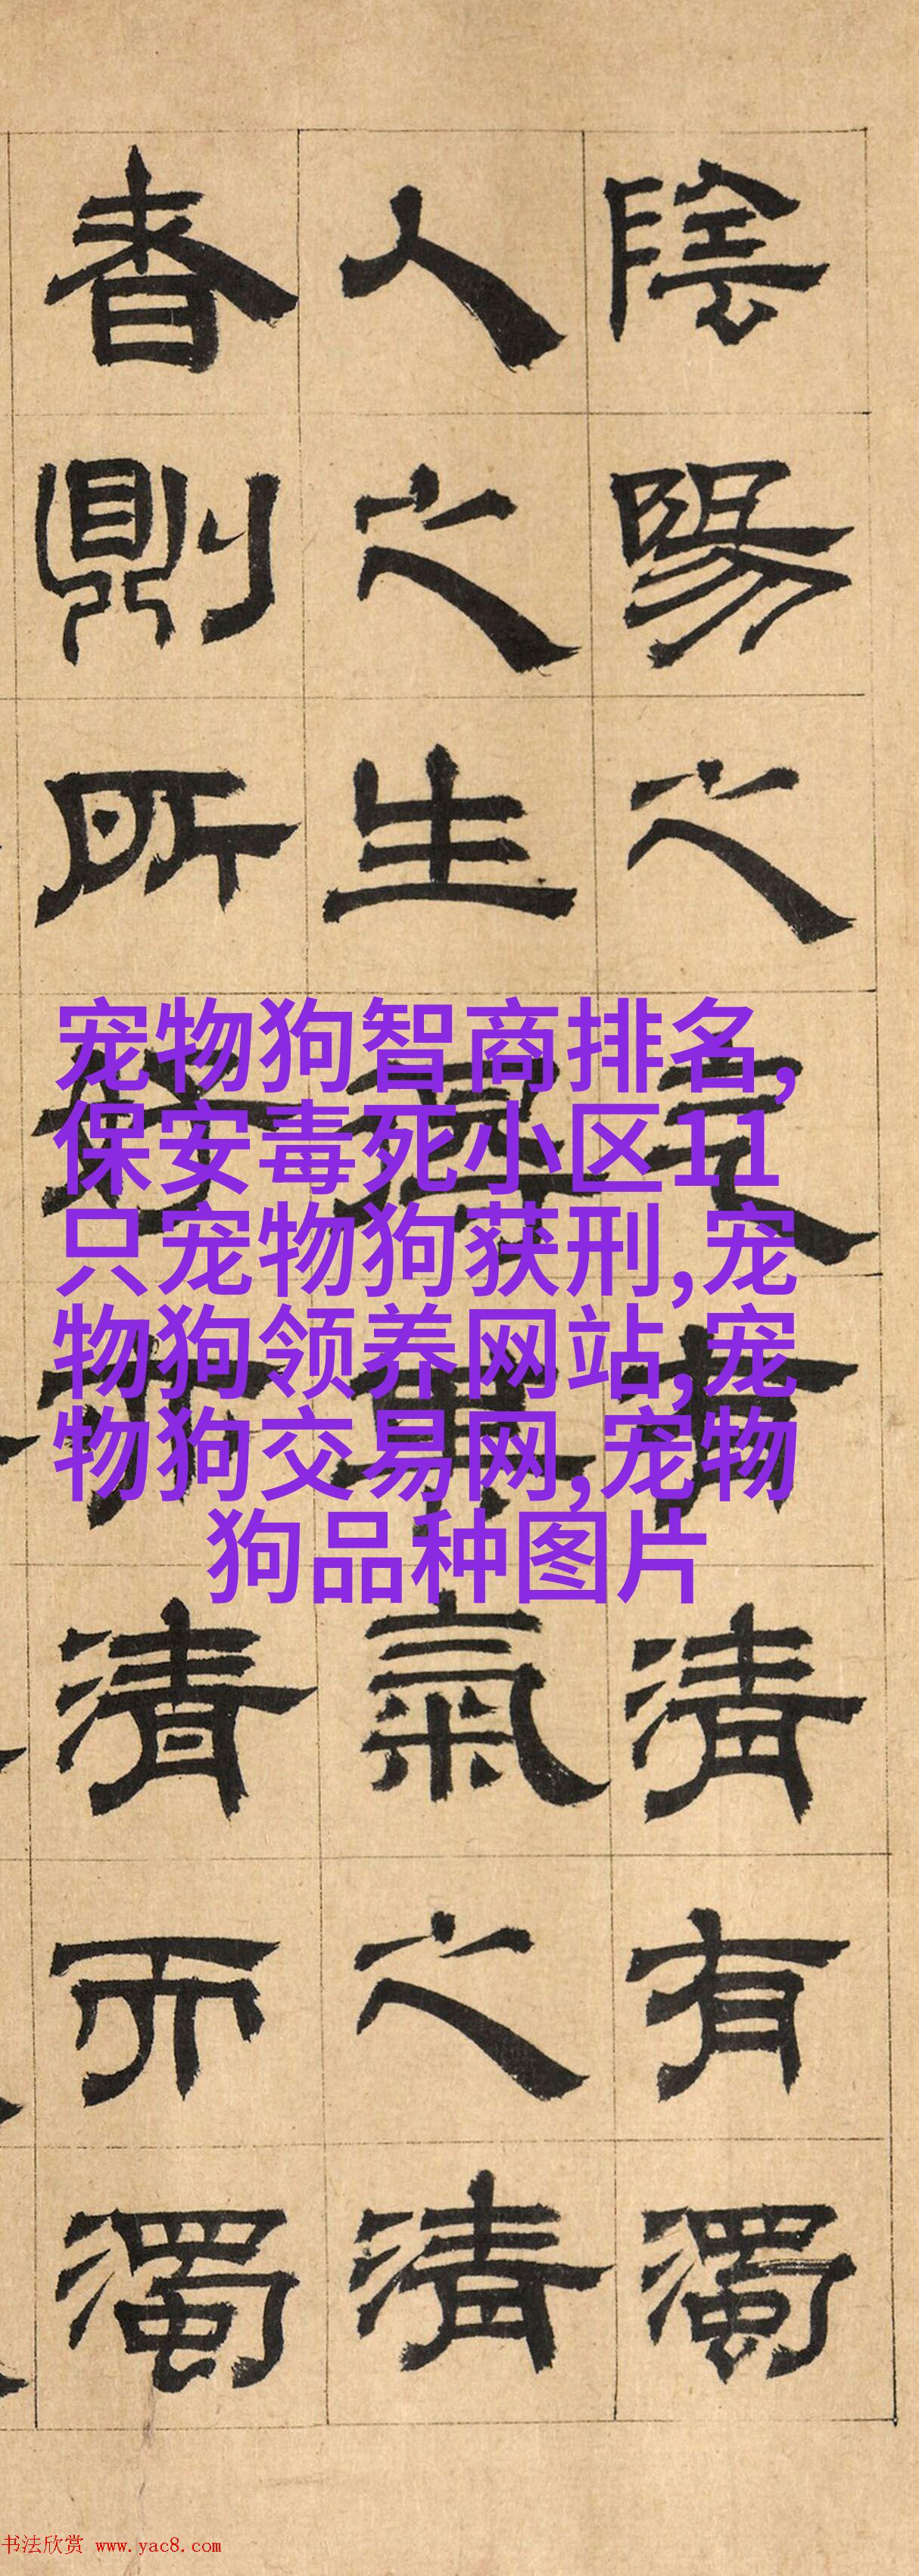 陰陽之气有清有濁
人之生得其氣之清
者則所好亦清而濁
宠物狗智商排名,
保安毒死小区11
只宠物狗获刑,宠
物狗领养网站,宠
物狗交易网,宠物
狗品种图片
书法欣赏 www.yac8.com